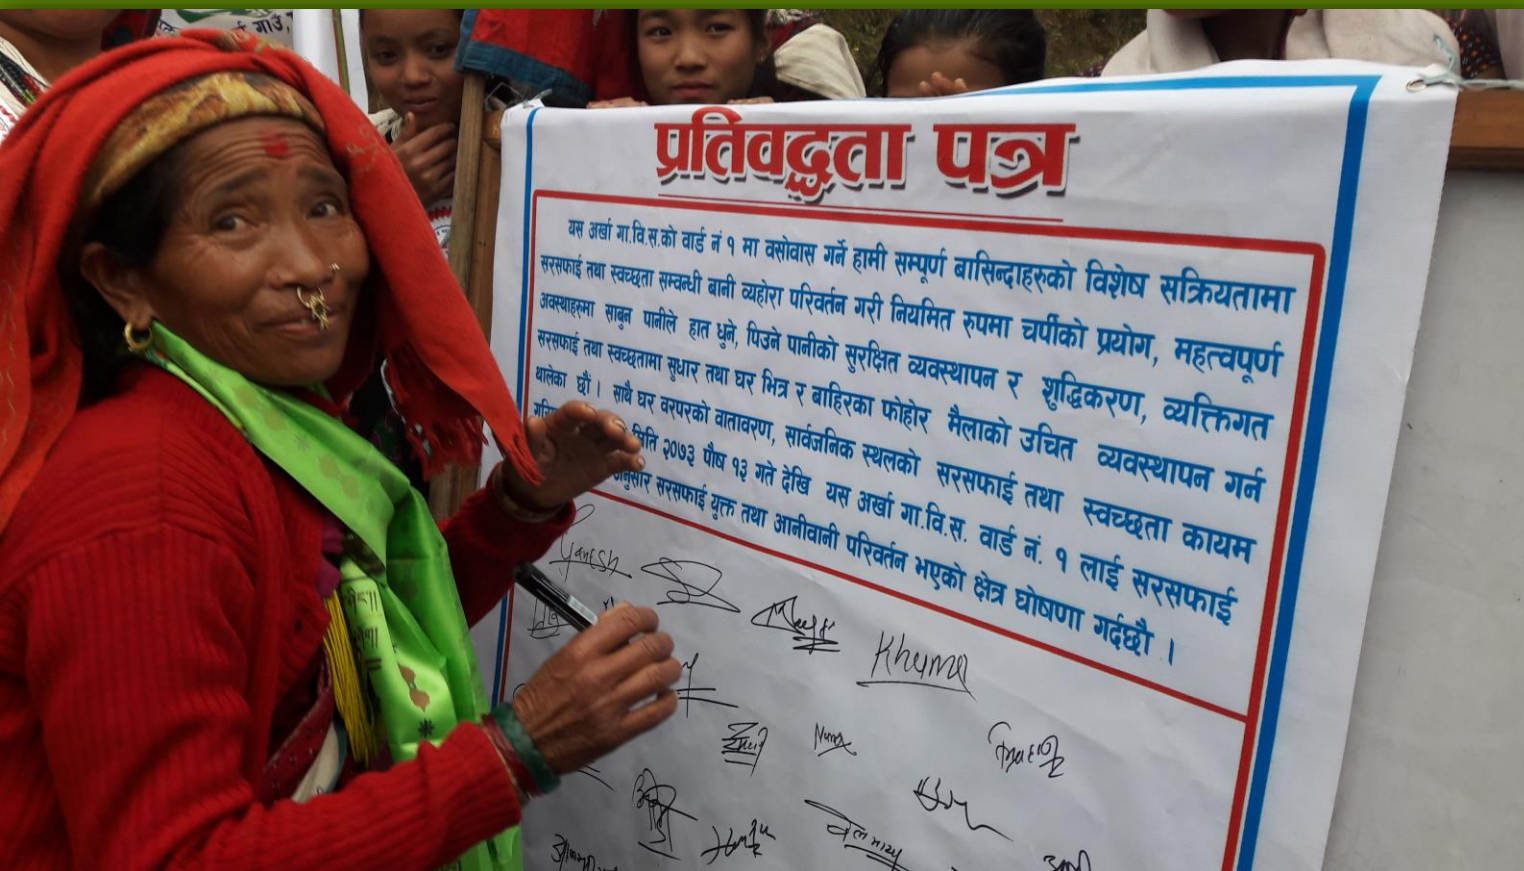 गाउँ,
प्रतिवद्धता पत्र
यस अर्खा गा.वि.स.को वार्ड नं १ मा वसोवास गर्ने हामी सम्पूर्ण बासिन्दाहरुको विशेष सक्रियतामा
सरसफाई तथा स्वच्छता सम्वन्धी बानी व्यहोरा परिवर्तन गरी नियमित रुपमा चर्पीको प्रयोग, महत्वपूर्ण
अवस्थाहरुमा साबुन पानीले हात धुने, पिउने पानीको सुरक्षित व्यवस्थापन र शुद्धिकरण, व्यक्तिगत
सरसफाई तथा स्वच्छतामा सुधार तथा घर भित्र र बाहिरका फोहोर मैलाको उचित व्यवस्थापन गर्न
थालेका छौं । साथै घर वरपरको वातावरण, सार्वजनिक स्थलको सरसफाई तथा स्वच्छता कायम
मिति २०७३ पौष १३ गते देखि यस अर्खा गा.वि.स. वार्ड नं. १ लाई सरसफाई
अनुसार सरसफाई युक्त तथा आनीवानी परिवर्तन भएको क्षेत्र घोषणा गर्दछौ ।
Ganesh
Khuma